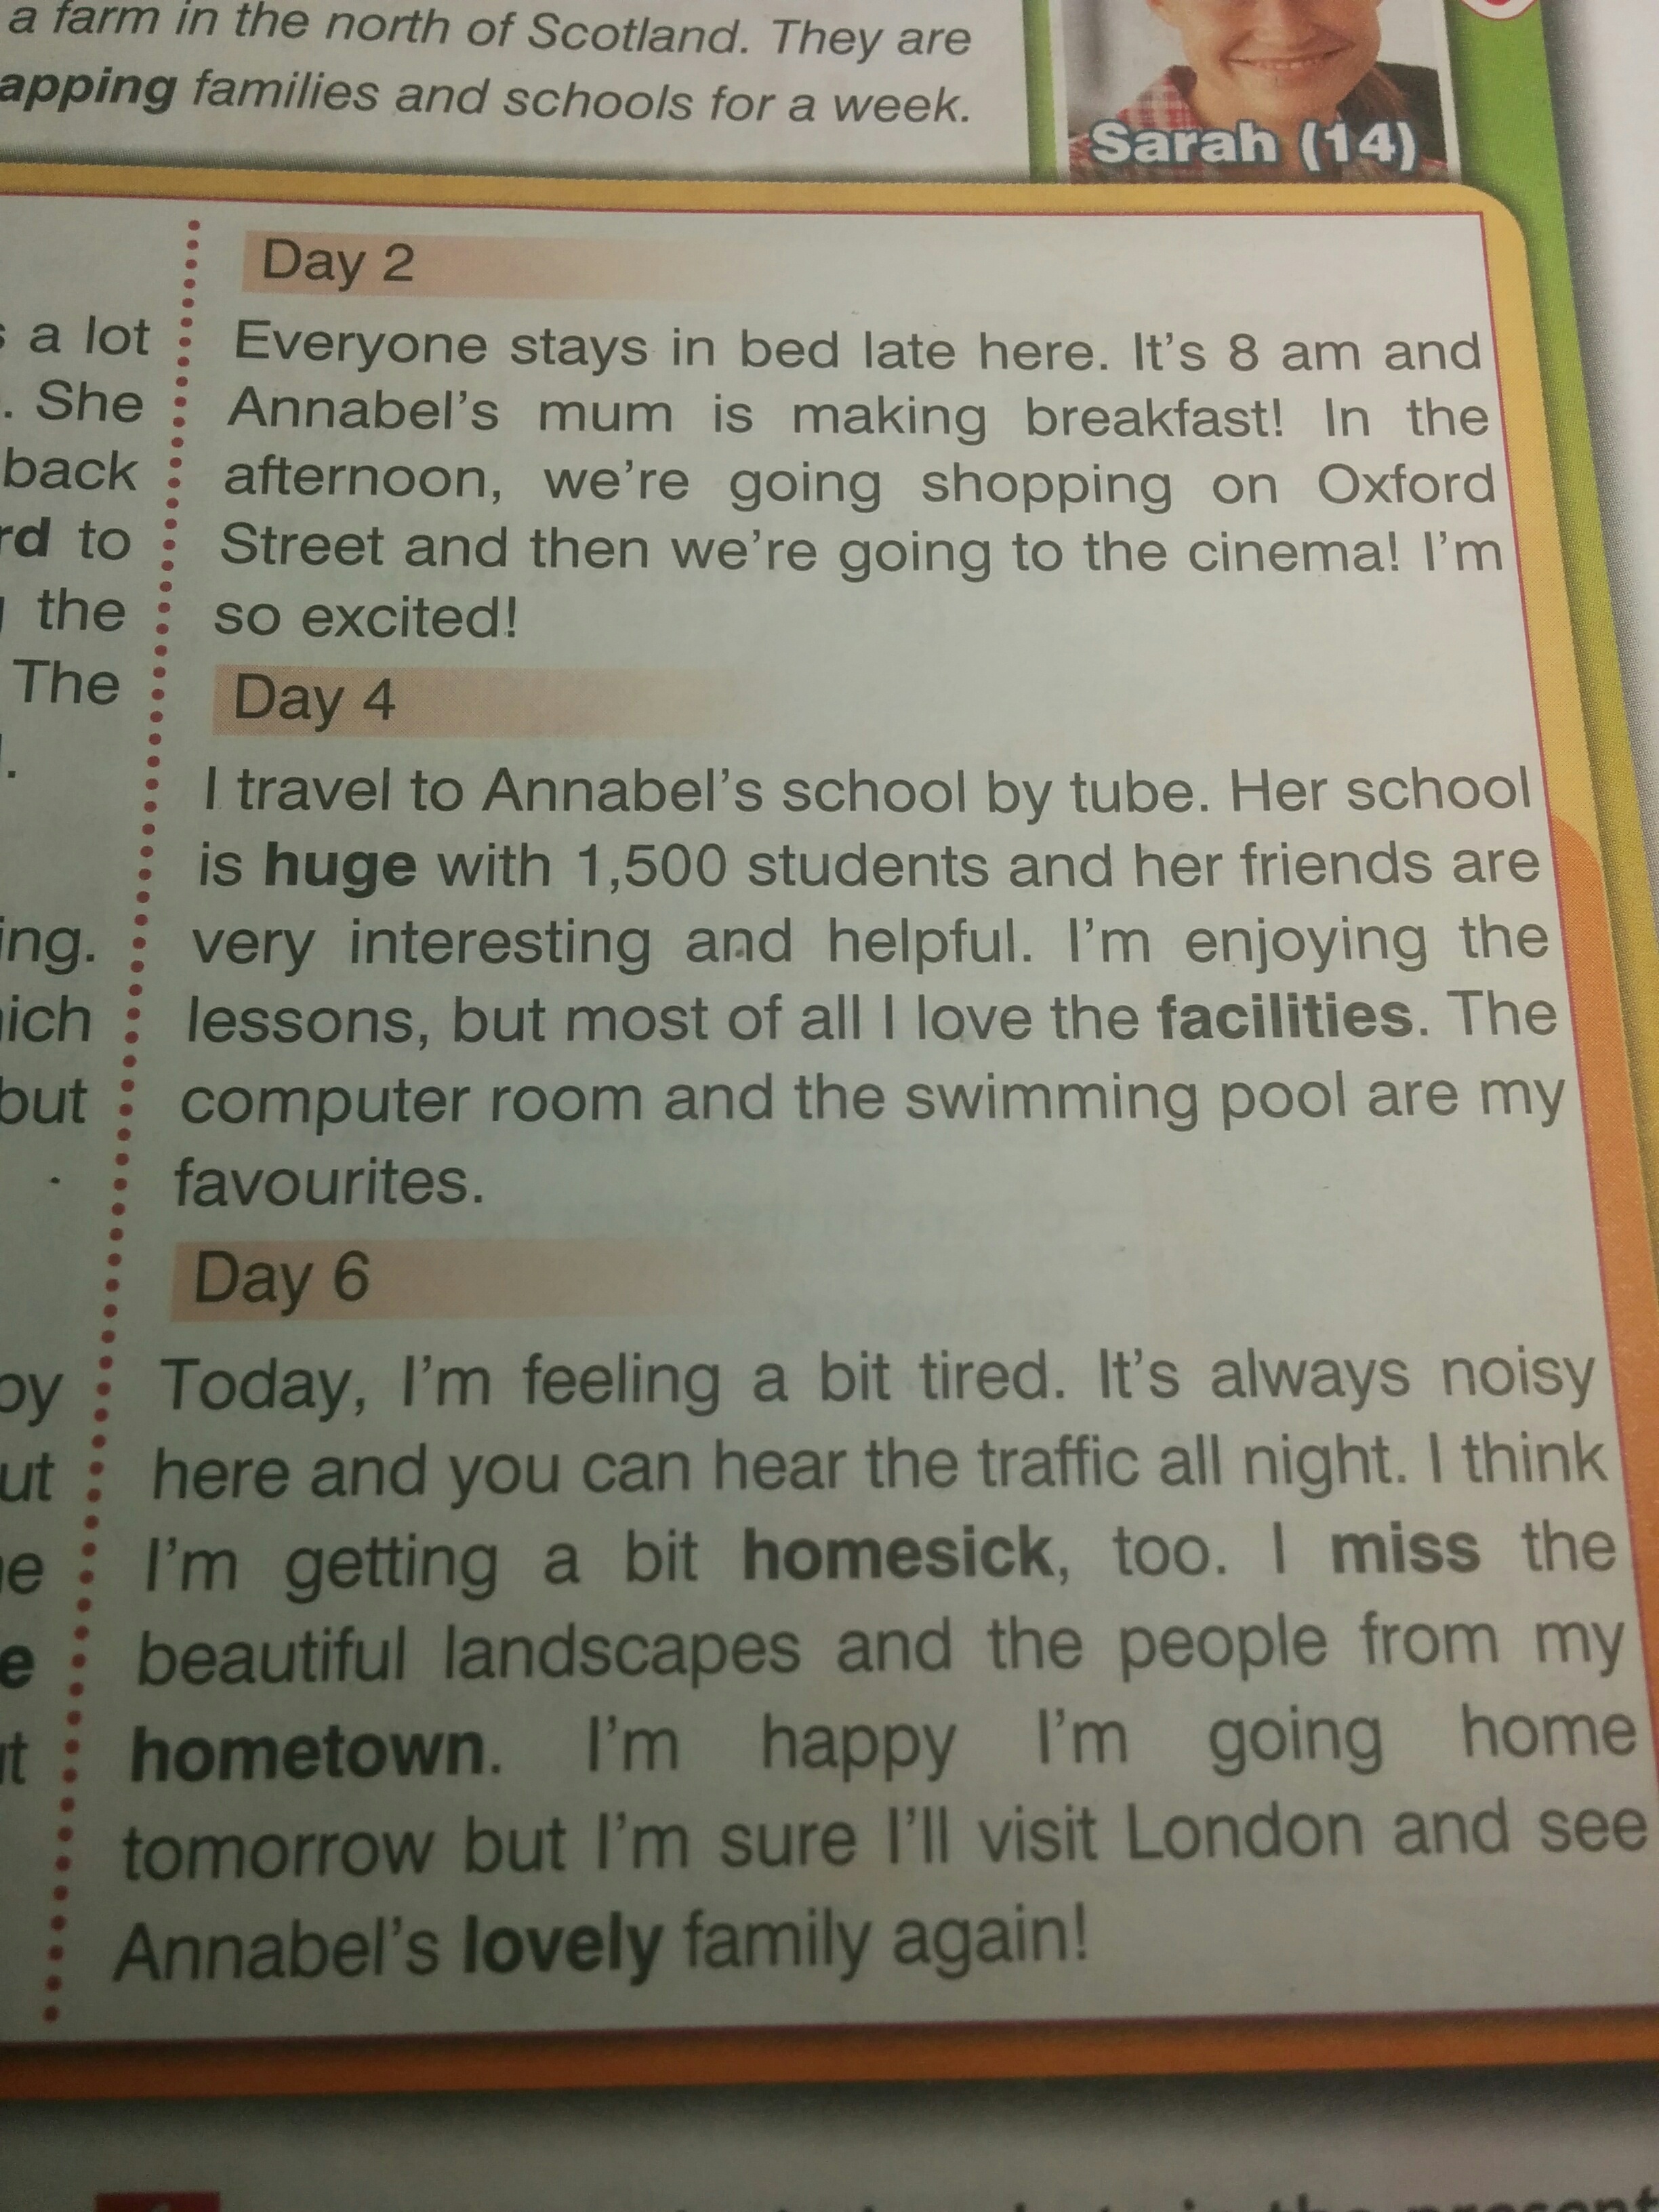 a farm in the north of Scotland. They are
apping families and schools for a week.
Sarah (14)
a lot
. She
back
rd to
the
The
.
ing.
ich
but
by
ut
e
e
t
Day 2
Everyone stays in bed late here. It's 8 am and
Annabel's mum is making breakfast! In the
afternoon, we're going shopping on Oxford
Street and then we're going to the cinema! I'm
so excited!
Day 4
I travel to Annabel's school by tube. Her school
is huge with 1,500 students and her friends are
very interesting and helpful. I'm enjoying the
lessons, but most of all I love the facilities. The
computer room and the swimming pool are my
favourites.
Day 6
Today, I'm feeling a bit tired. It's always noisy
here and you can hear the traffic all night. I think
I'm getting a bit homesick, too. I miss the
beautiful landscapes and the people from my
hometown. I'm happy I'm going home
tomorrow but I'm sure I'll visit London and see
Annabel's lovely family again!